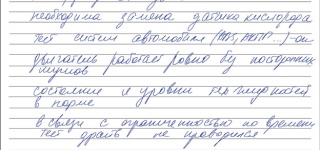 необходима замена датчика кислорода
тест систем автомобиля (ABS, АКПП..)-ок
двигатель работает ровно без посторонних
шумов
состояние и уровни тех жидкостей
в норме
в связи с ограниченностью по времени
тест драйв не проводился